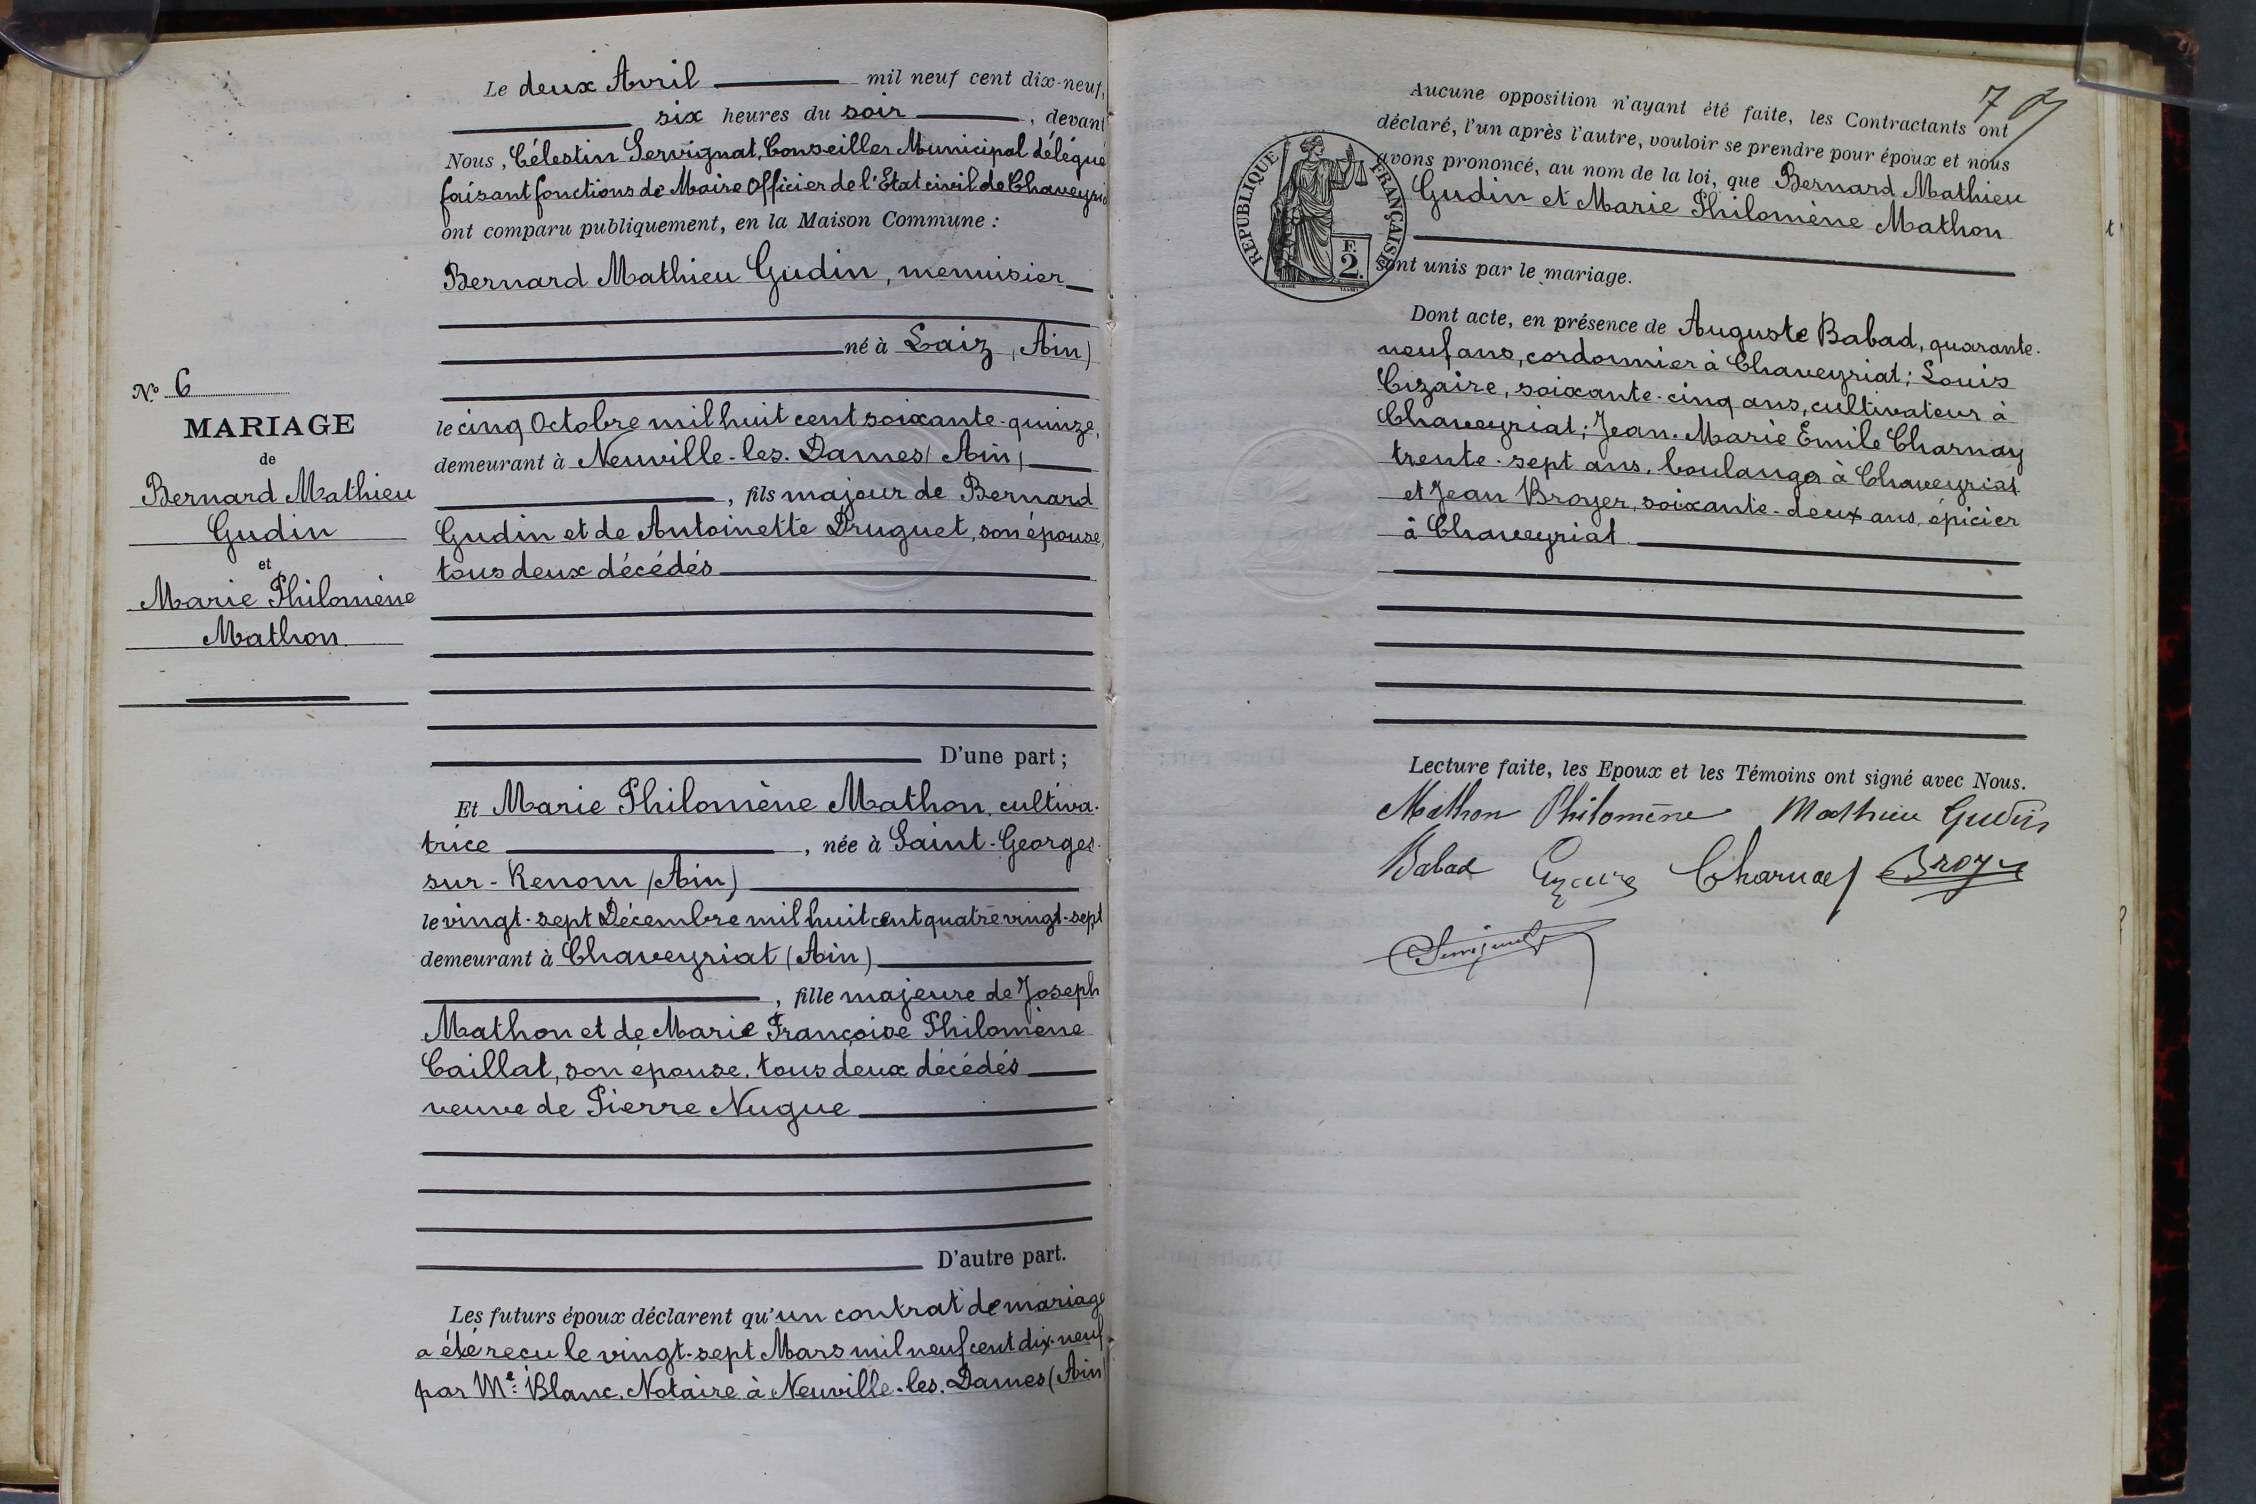 N° 6
MARIAGE
de
Bernard Mathieu
Gudin
et
Marie Philomène
Mathon
Le deux Avril mil neuf cent dix-neuf,
six heures du soir, devant
Nous, Célestin Servignat, Conseiller Municipal délégué
faisant fonctions de Maire Officier de l'Etat civil de Chaveyriat
ont comparu publiquement, en la Maison Commune :
Bernard Mathieu Gudin, menuisier
né à Laiz (Ain)
le cinq Octobre mil huit cent soixante-quinze,
demeurant à Neuville-les-Dames (Ain)
, fils majeur de Bernard
Gudin et de Antoinette Druguet, son épouse,
tous deux décédés
D'une part ;
Et Marie Philomène Mathon, cultiva-
trice, née à Saint-Georges-
sur-Renom (Ain)
le vingt-sept Décembre mil huit cent quatre vingt-sept
demeurant à Chaveyriat (Ain)
, fille majeure de Joseph
Mathon et de Marie Françoise Philomène
Caillat, son épouse, tous deux décédés
veuve de Pierre Nugue
D'autre part.
Les futurs époux déclarent qu'un contrat de mariage
a été reçu le vingt-sept Mars mil neuf cent dix-neuf
par Me Blanc, Notaire à Neuville-les-Dames (Ain)
7
RÉPUBLIQUE FRANÇAISE
F.
2.
Aucune opposition n'ayant été faite, les Contractants ont
déclaré, l'un après l'autre, vouloir se prendre pour époux et nous
avons prononcé, au nom de la loi, que Bernard Mathieu
Gudin et Marie Philomène Mathon
sont unis par le mariage.
Dont acte, en présence de Auguste Babad, quarante-
neuf ans, cordonnier à Chaveyriat ; Louis
Cizaire, soixante-cinq ans, cultivateur à
Chaveyriat ; Jean-Marie Emile Charnay
trente-sept ans, boulanger à Chaveyriat
et Jean Broyer, soixante-deux ans, épicier
à Chaveyriat
Lecture faite, les Epoux et les Témoins ont signé avec Nous.
Mathon Philomène Mathieu Gudin
Babad Cizaire Charnay Broyer
Servignat